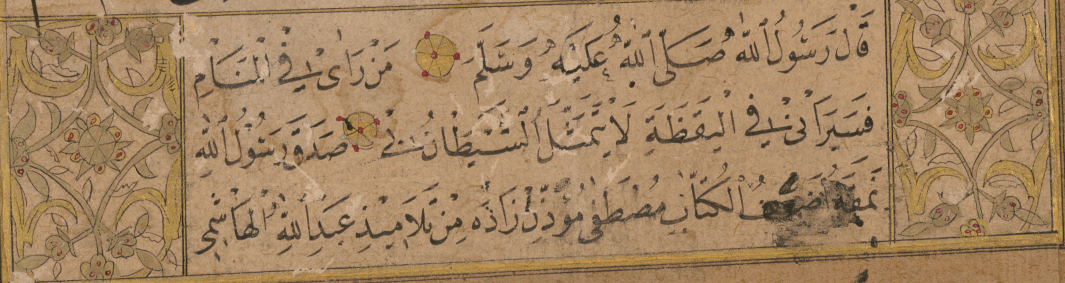 قَالَ رَسُولُ اللّٰهِ صَلَّى اللّٰهُ عَلَيْهِ وَسَلَّمَ مَنْ رَاٰنِى فِى الْمَنَامِ
فَسَيَرَانِى فِى الْيَقَظَةِ لَا يَتَمَثَّلُ الشَّيْطَانُ بِى صَدَقَ رَسُولُ اللّٰهِ
نَمَقَهُ ضَعِيفُ الْكُتَّابِ مُصْطَفٰى مُؤَذِّنْ زَادَه مِنْ تَلَامِيذِ عَبْدِ اللّٰهِ الْهَاشِمِى